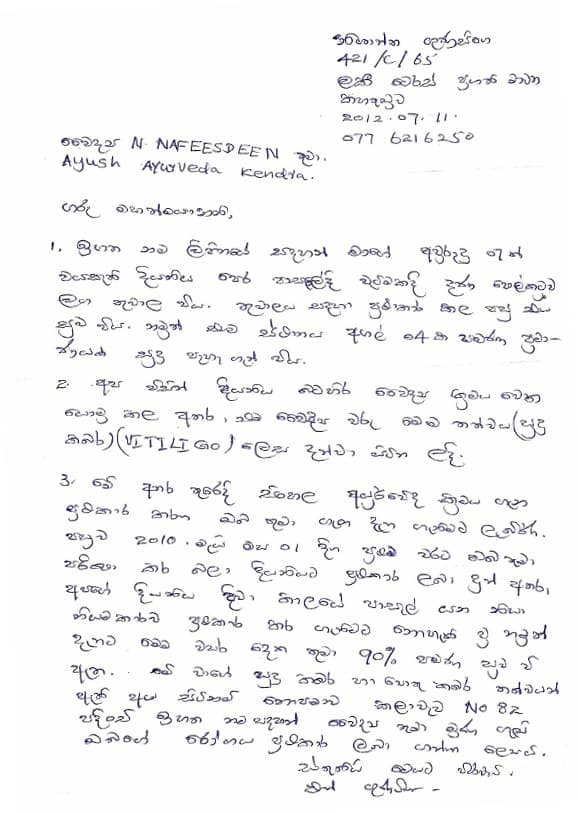 ගුණසිංහ
421/C/65
ලකී ටෙරස් ප්‍රගති මාවත
කහතුඩුව
2012.07.11.
077 6216250
වෛද්‍ය N. NAFEESDEEN තුමා.
Ayush Ayurveda Kendra.
ගරු මහත්මයාණනි,
1. ඉහත නම ලිපිනයේ සඳහන් මාගේ අවුරුදු 07ක්
වයසැති දියණිය පෙර පාසලේදී වැටීමකදී දණ
ලග තුවාල විය. තුවාලය සඳහා ප්‍රතිකාර කල පසු එය
සුව විය. නමුත් එම ස්ථානය අඟල් 04 ක පමණ ප්‍රමා-
ණයක් සුදු පැහැ ගැන් විය.
2. අප විසින් දියණිය බටහිර වෛද්‍ය ක්‍රමය වෙත
යොමු කල අතර, එම වෛද්‍ය වරු මෙම තත්වය (සුදු
කබර) (VITILIGO) ලෙස දන්වා සිටින ලදි.
3. මේ අතර තුරේදි සිංහල අයුර්වේද ක්‍රමය ගැන
ප්‍රතිකාර කරන ඔබ තුමා ගැන දැන ගැනීමට ලැබිණි.
පසුව 2010. මැයි මස 01 දින ප්‍රථම වරට ඔබ තුමා
පරීක්ෂා කර බලා දියණියට ප්‍රතිකාර ලබා දුන් අතර,
අපගේ දියණිය දිවා කාලයේ පාසැල් යන නිසා
නියමාකාරව ප්‍රතිකාර කර ගැනීමට නොහැකි වූ නමුත්
දැනට මෙම වසර දෙක තුල 90% පමණ සුව වී
ඇත. මේ වාගේ සුදු කබර හා පොතු කබර තත්වයන්
ඇති අය සිටිනම් නොපමාව කලාවැව No 82
පදිංචි ඉහත නම සඳහන් වෛද්‍ය තුමා මුණ ගැසී
ඔබගේ රෝගය ප්‍රතිකාර ලබා ගන්න ලෙසයි.
ස්තුතියි මෙයට